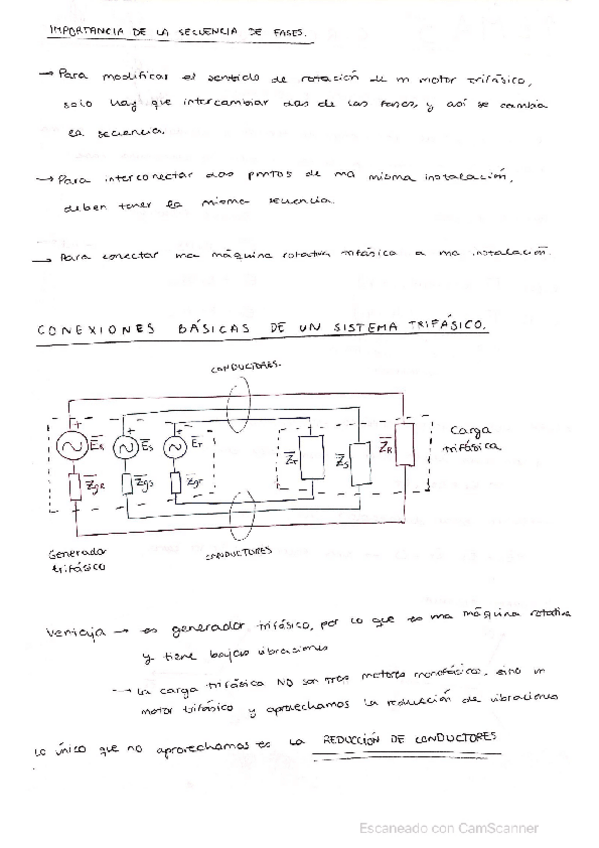 IMPORTANCIA DE LA SECUENCIA DE FASES.
→ Para modificar el sentido de rotación de un motor trifásico,
solo hay que intercambiar dos de las fases, y así se cambia
la secuencia.
→ Para interconectar dos puntos de una misma instalación,
deben tener la misma secuencia.
→ Para conectar una máquina rotativa trifásica a una instalación.
CONEXIONES BÁSICAS DE UN SISTEMA TRIFÁSICO.
CONDUCTORES.
+ + +
E̅R E̅S E̅T Z̅T Z̅S Z̅R
Carga
trifásica
Z̅gR Z̅gS Z̅gT
Generador
trifásico
CONDUCTORES
Ventaja → es generador trifásico, por lo que es una máquina rotativa
y tiene bajas vibraciones
→ La carga trifásica NO son tres motores monofásicos, sino un
motor trifásico y aprovechamos la reducción de vibraciones
Lo único que no aprovechamos es la REDUCCIÓN DE CONDUCTORES
Escaneado con CamScanner